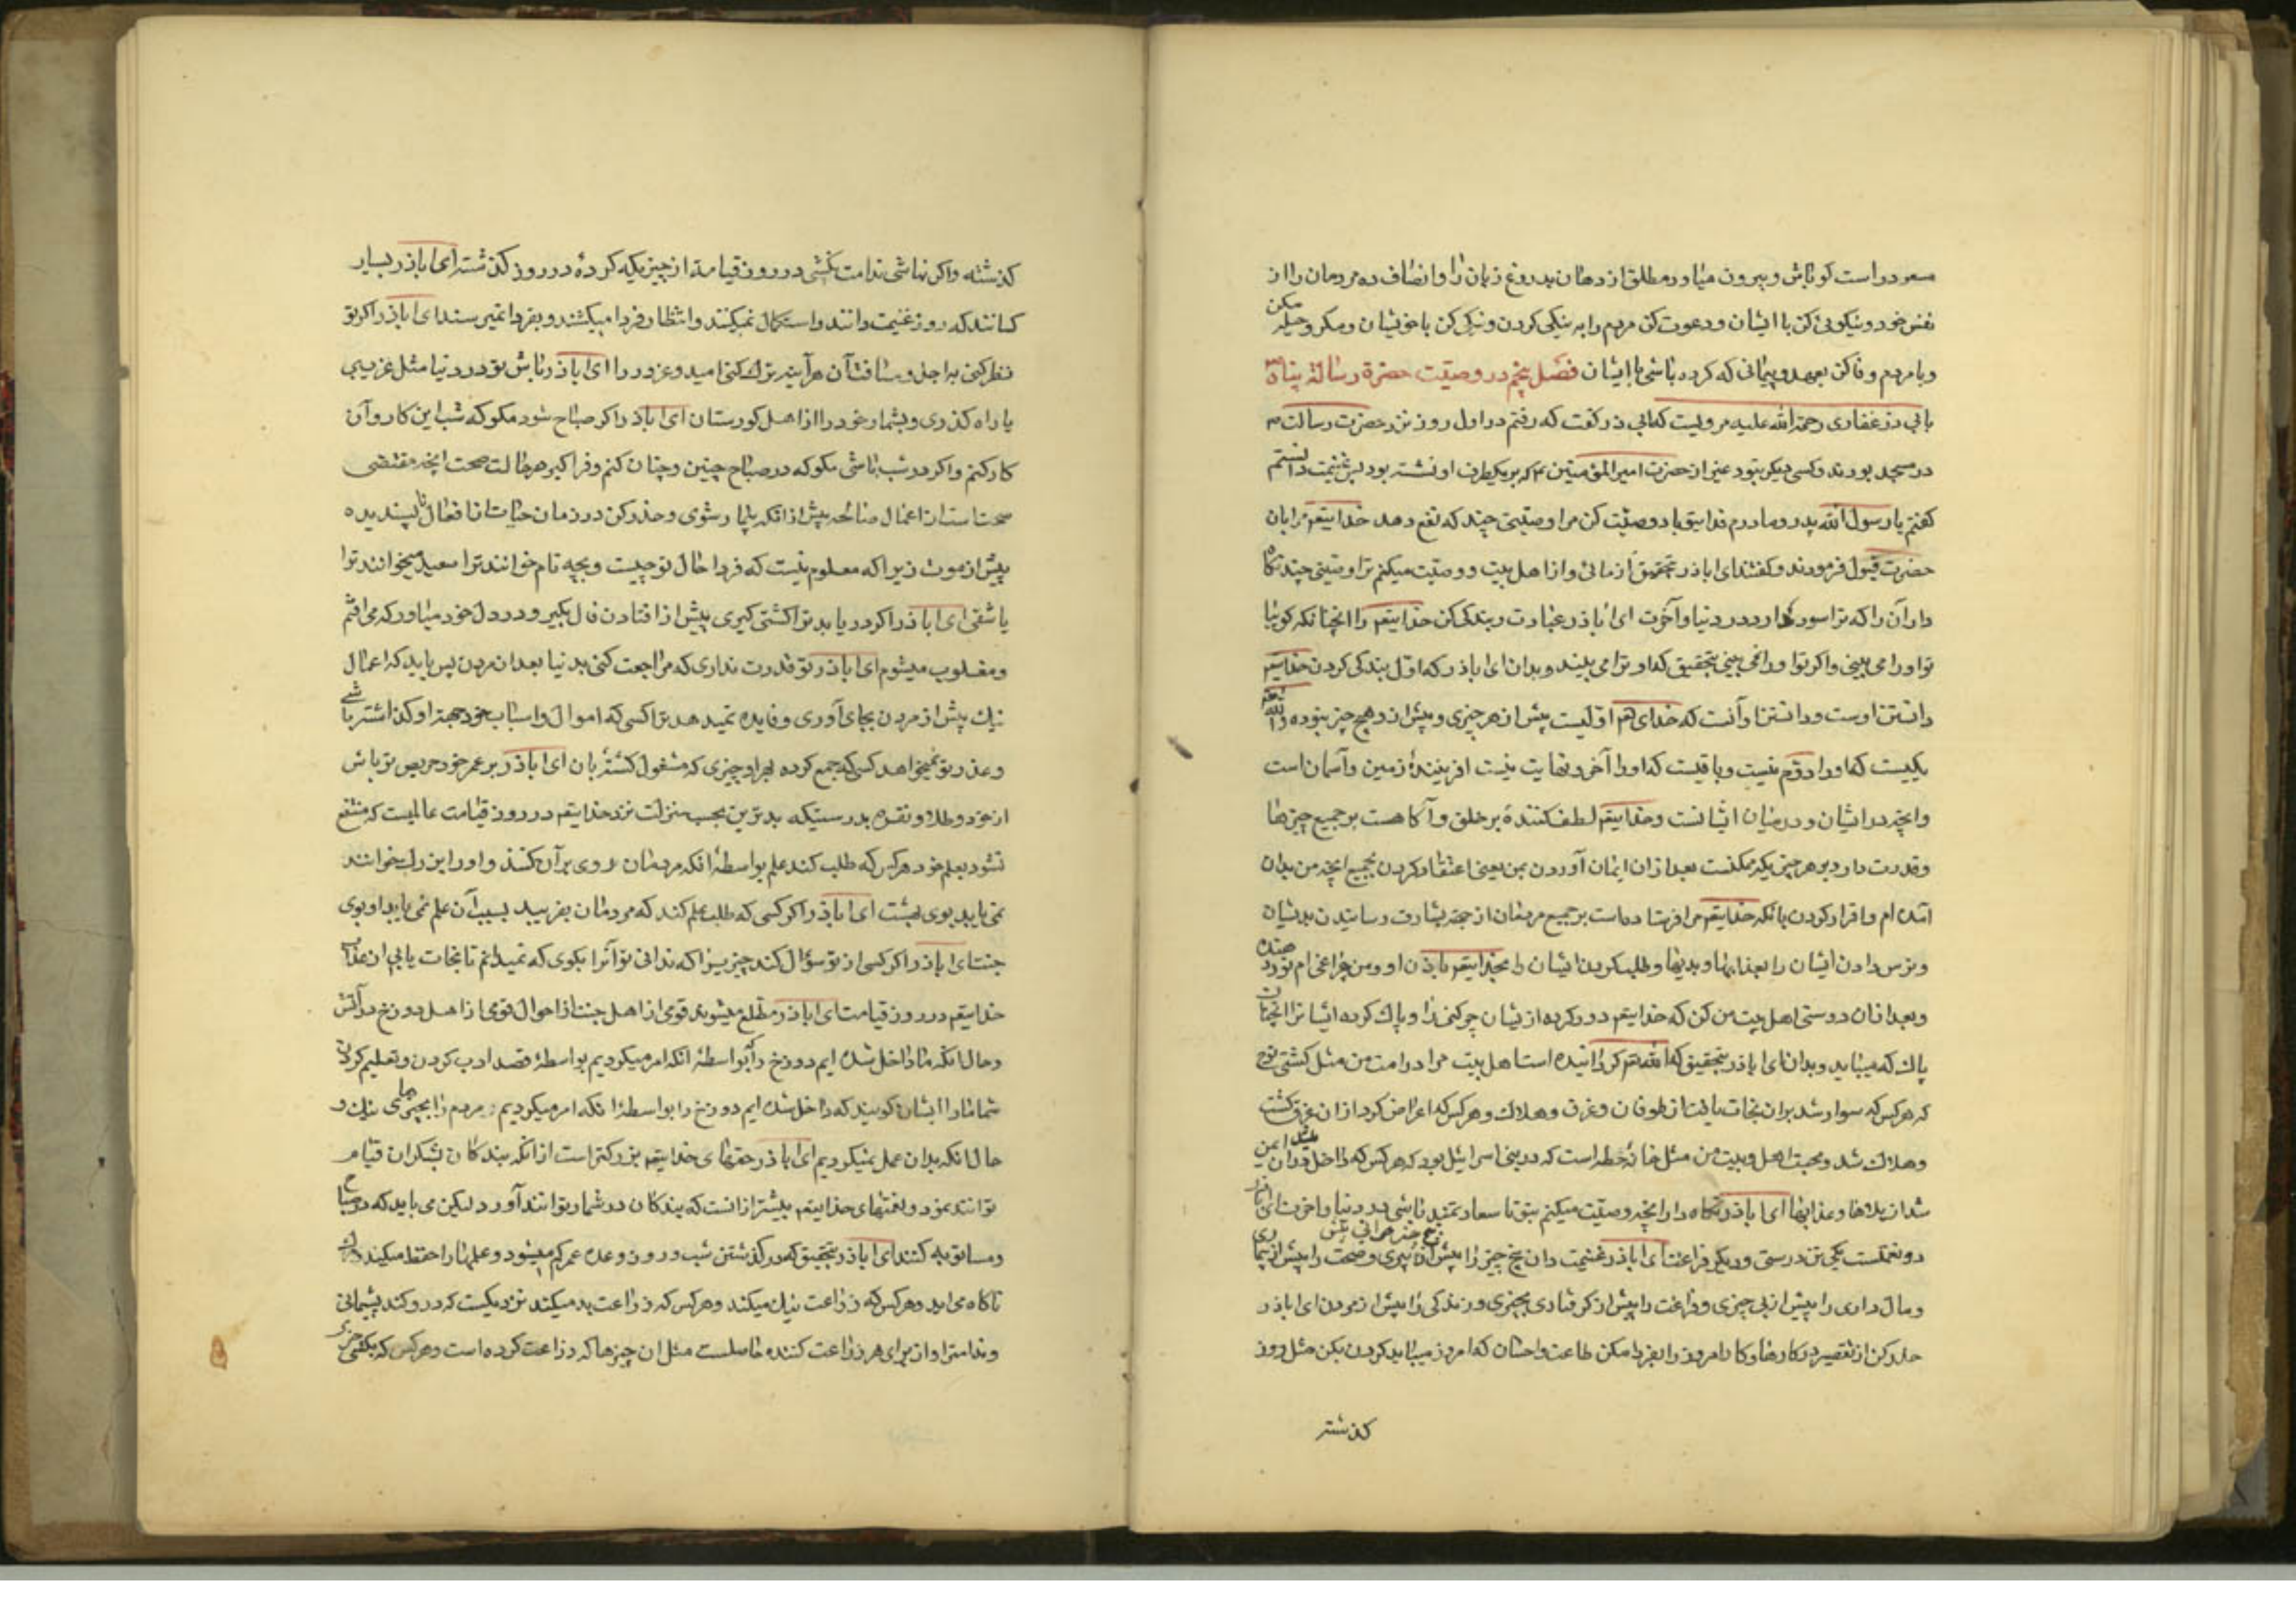 مسعود راست کو باش و بیرون میاور مطلق از دهان بد روغ زبان را و انصاف ده مردمان را از
نفس خود و نیکویی کن با ایشان و دعوت کن مردم را به نیکی کردن و نیکی کن با خویشان و مکر و حیله مکن
و با مردم وفا کن بعهد و پیمانی که کرده باشی با ایشان فصل پنجم در وصیّت حضرة رسالة پناه
بابی ذر غفاری رحمة الله علیه مرویست که ابی ذر کفت که رفتم در اول روز نزد حضرت رسالت
در مسجد بودند و کسی دیکر نبود غیر از حضرت امیر المؤمنین که بر یکطرف او نشسته بود پس غنیمت دانستم
کفتم یا رسول الله پدر و مادرم فدای تو باد وصیّت کن مرا وصیّتی چند که نفع دهد خدایتعم مرا بان
حضرت قبول فرمودند و کفتند ای اباذر بتحقیق از مائی و از اهل بیت و وصیّت میکنم ترا وصیتی چند نکاه
دار آن را که ترا سود دارد در دنیا و آخرت ای اباذر عبادت و بندکی کن خدایتعم را انچنانکه کوییا
تو او را می بینی و اکر تو او را نمی بینی بتحقیق که او ترا می بیند و بدان ای اباذر که اوّل بندکی کردن خدایتعم
دانستن اوست و دانستن او آنست که خدای اوّلیست پیش از هر چیزی و پیش از و هیچ چیز نبوده و الله تعم
یکیست که او را دوّم نیست و باقیست که او را آخر و نهایت نیست افرینندهٔ زمین و آسمان است
و انچه در ایشان و در میان ایشانست و خدایتعم لطف کنندهٔ بر خلق و آکاهست بر جمیع چیزها
و قدرت دارد بر هر چیزیکه ممکنست بعد از ان ایمان آوردن بمن یعنی اعتقاد کردن بجمیع انچه من بدان
آمده ام و اقرار کردن بانکه خدایتعم مرا فرستاده است بر جمیع مردمان از جهة بشارت رسانیدن بدیشان
و ترس دادن ایشان را بعذابها و بدیها و طلب کردن ایشان را بخدایتعم باذن او و من چراغی ام نور دهنده
و بعد از ان دوستی اهل بیت من کن که خدایتعم دور کرده از یشان چرکنی را و پاک کرده ایشان را انچنان
پاک که میباید و بدان ای اباذر بتحقیق که الله تعم کردانیده است اهل بیت مرا در امت من مثل کشتی نوح
که هر کس که سوار شد بران نجات یافت از طوفان و غرق و هلاک و هر کس که اعراض کرد از ان غرق کشت
و هلاک شد و محبت اهل بیت من مثل خانهٔ حطه است که در بنی اسرائیل بود که هر کس که داخل در ان میشد ایمن
شد از بلاها و عذابها ای اباذر نکاه دار انچه وصیّت میکنم بتو تا سعادتمند باشی در دنیا و اخرت ای اباذر
دو نعمتست یکی تن درستی و دیکر فراغت ای اباذر غنیمت دان پنج چیز را پیش از پنج چیز جوانی پیش از پیری و صحت را پیش از بیماری
و مال داری را پیش از بی چیزی و فراغت را پیش از کرفتاری بچیزی و زندکی را پیش از مردن ای اباذر
حذر کن از تقصیر در کارها و کار امروز را بفردا مکن طاعت و احسان که امروز میباید کردن بکن مثل روز
کذشته
کذشته و اکر نباشی ندامت نکشی در روز قیامة از چیزیکه کردهٔ در روز کذشته ای اباذر بسیار
کسانند که روز غنیمت دانند و استکمال نمیکنند و انتظار فردا میکشند و بفردا نمیرسند ای اباذر اکر تو
نظر کنی به اجل و مسافت آن هر آینه ترک کنی امید و غرور را ای اباذر باش تو در دنیا مثل غریبی
یا راه کذری و بشمار خود را از اهل کورستان ای اباذر اکر صباح شود مکو که شب این کار و آن
کار کنم و اکر در شب باشی مکو که در صباح چنین و چنان کنم و فرا کیر در حالت صحت انچه مقتضی
صحت است از اعمال صالحه پیش از انکه بیمار شوی و حذر کن در زمان حیات از افعال ناپسندیده
پیش از موت زیرا که معلوم نیست که فردا حال تو چیست و بچه نام خوانند ترا سعید میخوانند ترا
یا شقی ای اباذر اکر در یابد ترا کشتی کیری پیش از افتادن فال بکیر و در دل خود میاور که می افتم
و مغلوب میشوم ای اباذر تو قدرت نداری که مراجعت کنی بدنیا بعد از مردن پس باید که اعمال
نیک پیش از مردن بجای آوری و فایده نمیدهد ترا کسی که اموال و اسباب خود جهة او کذاشته باشی
و عذر تو نمیخواهد کسی که جمع کرده بر او چیزی که مشغول کشتهٔ بان ای اباذر بر عمر خود حریص تر باش
از خود و طلا و نقره بدرستیکه بدترین بحسب منزلت نزد خدایتعم در روز قیامت عالمیست که منتفع
نشود بعلم خود هر کس که طلب کند علم بواسطهٔ انکه مردمان روی بر آن کنند و او را بزرک خوانند
نمی یابد بوی بهشت ای اباذر اکر کسی که طلب علم کند که مردمان بفریبد بسبب آن علم نمی یابد او بوی
جنت ای اباذر اکر کسی از تو سؤال کند چیزیرا که ندانی تو آنرا بکوی که نمیدانم تا نجات یابی از عذاب
خدایتعم در روز قیامت ای اباذر مطلع میشوند قومی از اهل جنت از احوال قومی از اهل دوزخ در آتش
و حال انکه ما داخل شده ایم دوزخ را بواسطهٔ انکه امر میکردیم بواسطهٔ قصد ادب کردن و تعلیم کردن
شما ما را ایشان کویند که داخل شده ایم دوزخ را بواسطهٔ انکه امر میکردیم مردم را بچیزهای نیک و
حال انکه بدان عمل نمیکردیم ای اباذر حقهای خدایتعم بزرکتر است از انکه بندکان بشکران قیام
توانند نمود و نعمتهای خدایتعم بیشتر از انست که بندکان در شمار توانند آورد لیکن می باید که در صباح
و مسا توبه کنند ای اباذر بتحقیق که در کذشتن شب و روز وعده عمر کم میشود و عملها را حفظ میکند
ناکاه می اید و هر کس که زراعت نیک میکند و هر کس که زراعت بد میکند نزدیکست که درو کند پشیمانی
و ندامت را و از برای هر زراعت کننده حاصلست مثل ان چیزها که زراعت کرده است و هر کس که